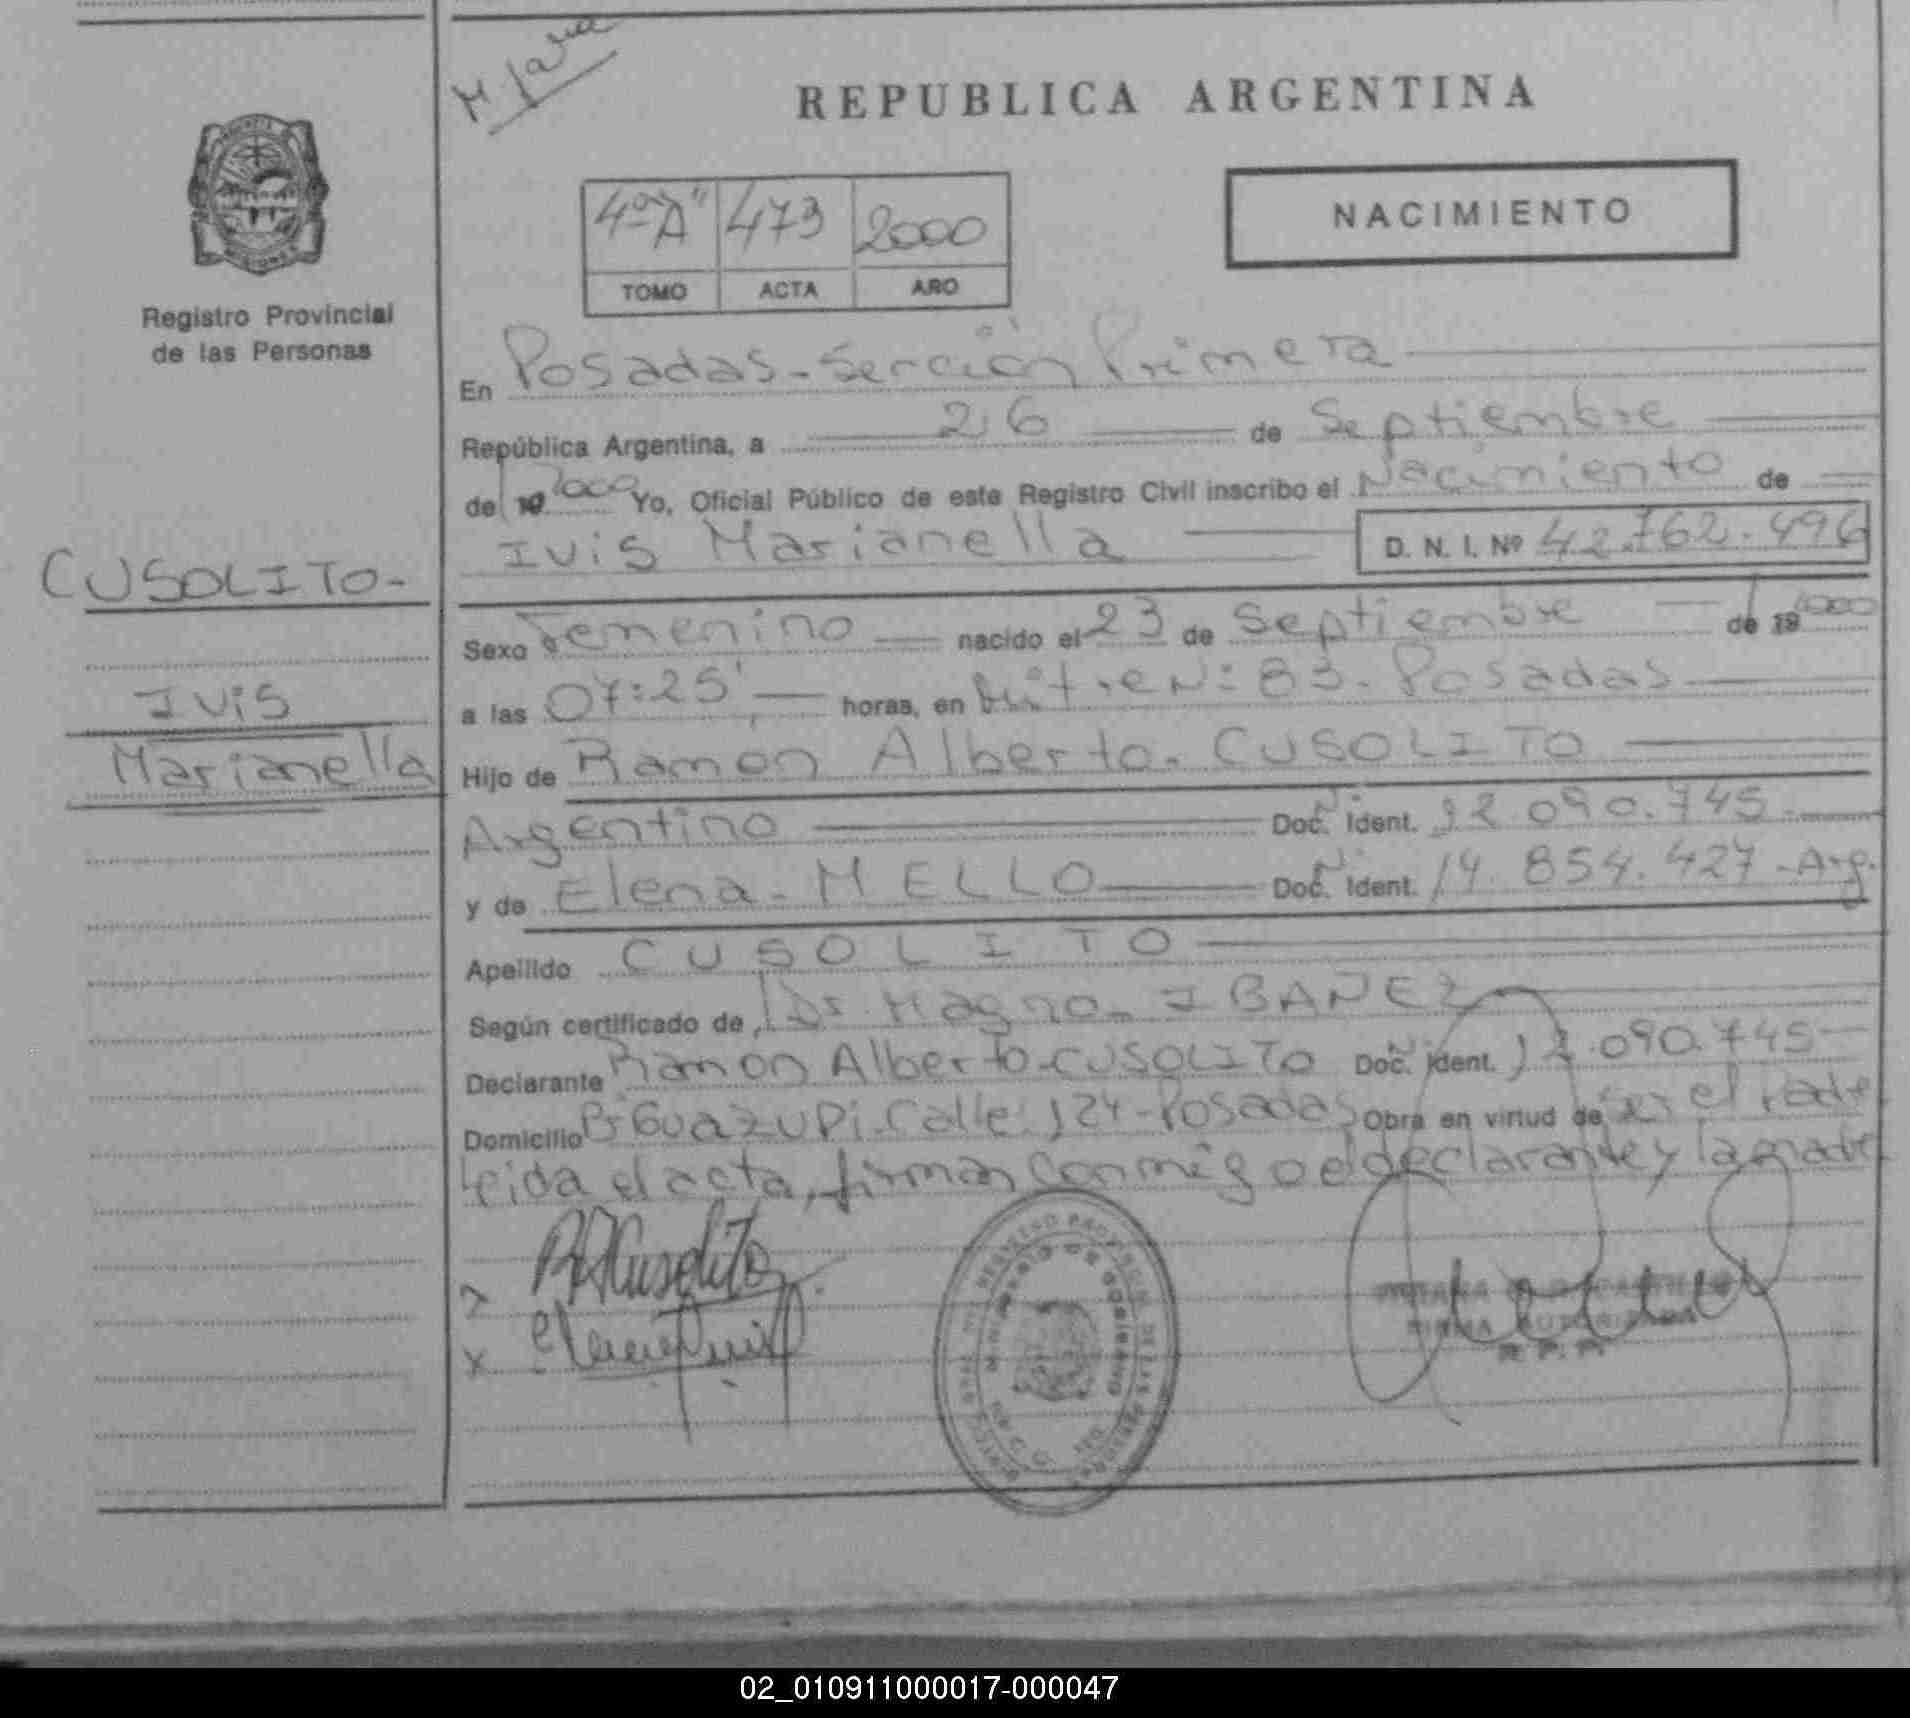 REPUBLICA ARGENTINA
NACIMIENTO
4º "A" 473 2000
TOMO ACTA AÑO
Registro Provincial
de las Personas
CUSOLITO-
Ivis
Marianella
En Posadas-Sección Primera
República Argentina, a 26 de Septiembre
de 19 2000 Yo, Oficial Público de este Registro Civil inscribo el Nacimiento de
Ivis Marianella D. N. I. Nº 42.762.496
Sexo Femenino nacido el 23 de Septiembre de 19 2000
a las 07:25' horas, en Mitre Nº 83. Posadas
Hijo de Ramón Alberto. CUSOLITO
Argentino Doc. Ident. 12.090.745.
y de Elena-MELLO Doc. Ident. 14.854.427-Arg.
Apellido CUSOLITO
Según certificado de Dr. Magno-IBAÑEZ
Declarante Ramón Alberto-CUSOLITO Doc. Ident. 12.090.745
Domicilio Bº Guazupi-Calle: 124-Posadas Obra en virtud de ser el Padre
Leida el acta, firman conmigo el declarante y la madre
RACusolito
FIRMA AUTORIZADA
R. P. P.
02_010911000017-000047